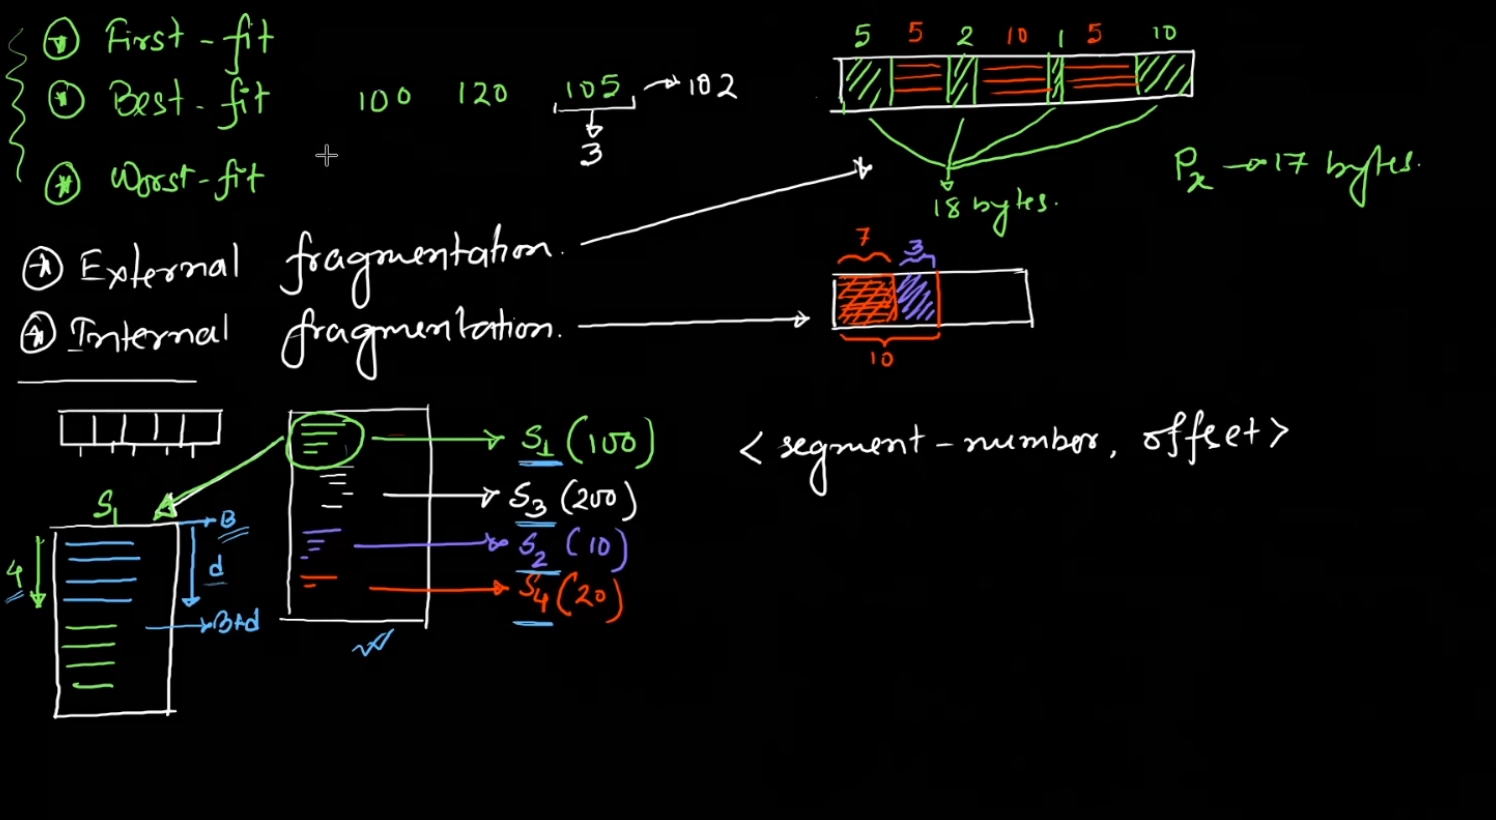 First-fit
Best-fit
Worst-fit
100 120 105 → 102
3
5 5 2 10 1 5 10
18 bytes.
Px → 17 bytes.
External fragmentation.
Internal fragmentation.
7 3
10
S1 (100)
S3 (200)
S2 (10)
S4 (20)
<segment-number, offset>
S1
B
d
4
B+d